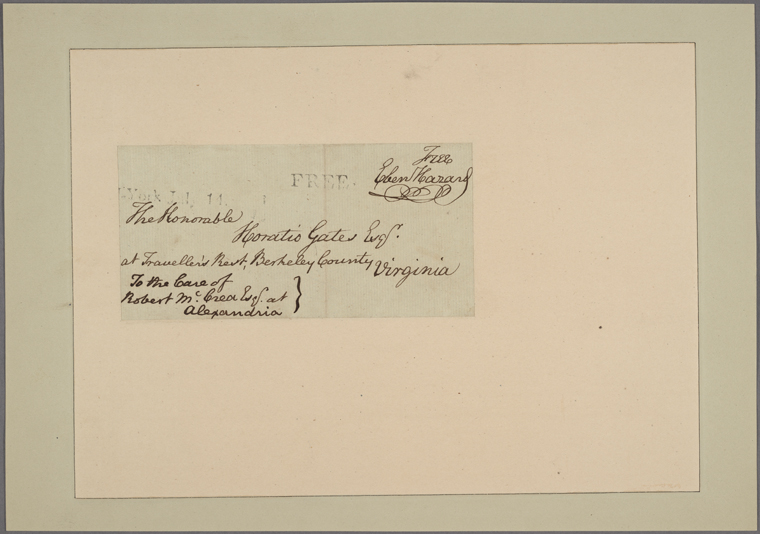 Free
FREE.
Eben Hazard
York Jul, 14.
The Honorable
Horatio Gates Esqr.
at Traveller's Rest, Berkeley County
Virginia
To the Care of
Robert Mc. Crea Esqr. at
Alexandria